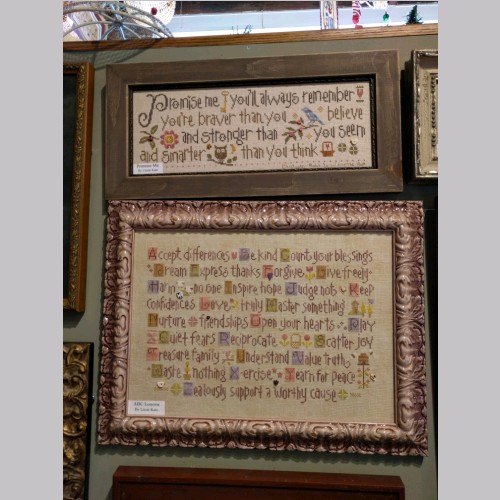 Promise me you'll always remember
you're braver than you believe
and stronger than you seem
and smarter than you think
Promise Me
Accept differences Be kind Count your blessings
Dream Express thanks Forgive Give freely
Harm no one Inspire hope Judge not Keep
confidences Love truly Master something
Nurture friendships Open your hearts Play
Quiet fears Reciprocate Scatter joy
Treasure family Understand Value truth
Waste nothing Xercise Yearn for peace
Zealously support a worthy cause
ABC Lessons